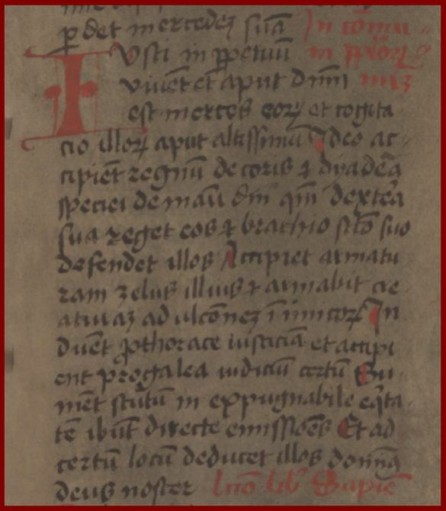 ꝑdet mercedeȝ suā In cōmu
Iusti in ꝑpetuū
viuēt et aput dn̄m
est merces eoꝝ et cogita
cio illoꝝ aput altissimū Ideo ac
cipient regnū decoris ⁊ dyadēa
speciei de manu dn̄i qm̄ dextera
sua reget eos ⁊ brachio sc̄o suo
defendet illos Accipiet armatu
ram zelus illius ⁊ armabit cre
aturaȝ ad ulcōnez inimicoꝝ In
duet ꝓ thorace iusticiā et accipi
et ꝓ galea iudiciū certū Su
met scutū in expugnabile eq̄ta
tē ibūt directe emissiōes Et ad
certū locū deducet illos domin9
deus noster lc̄o lib' Sapiē